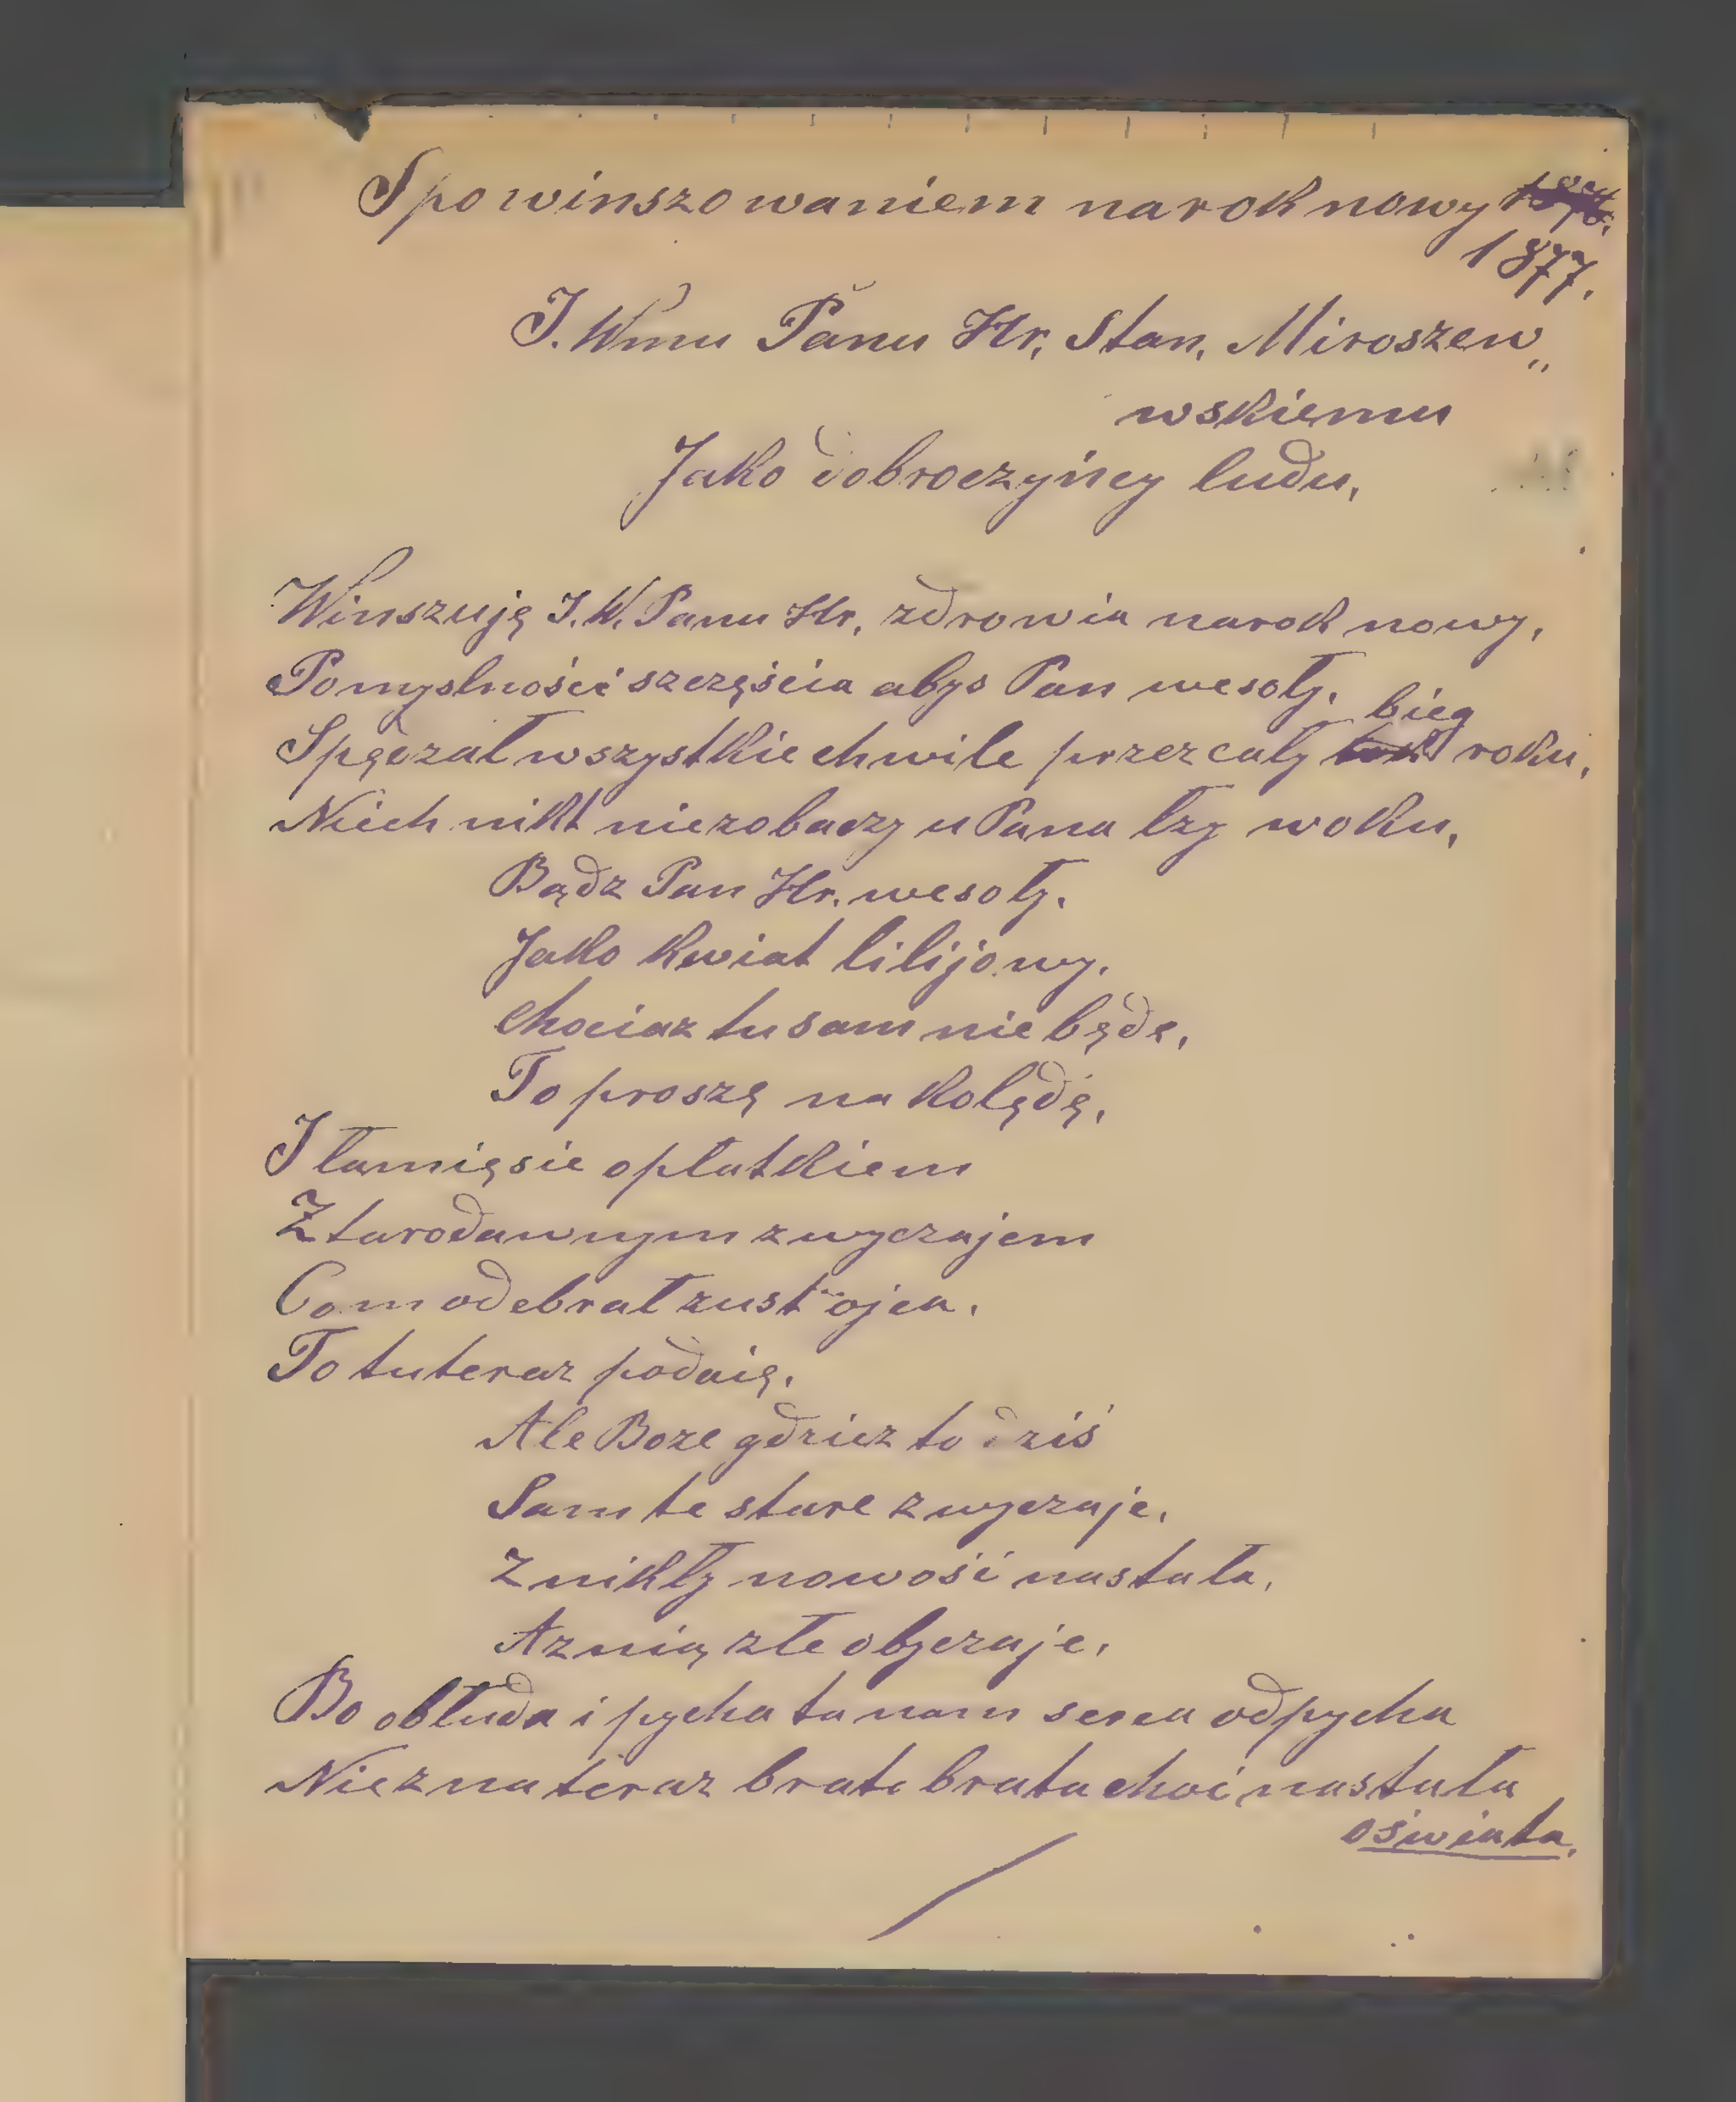 Spowinszowaniem narok nowy
1877.
J. Wmu Panu Hr. Stan. Miroszew„
wskiemu
Jako dobroczyńcy ludu,
Winszuję J. W. Panu Hr. zdrowia narok nowy,
Pomyslności szczęścia abys Pan wesoły.
bieg
Spędzał wszystkie chwile przez cały roku,
Niech nikt niezobaczy u Pana łzy woku,
Bądz Pan Hr. wesoły.
Jako kwiat lilijowy.
chociaz tu sam nie będe,
To proszę na kolędę,
I łamię sie opłatkiem
Z tarodawnym zwyczajem
Com odebrał zust ojca.
To tu teraz podaię.
Ale Boze gdziez to dziś
Sam te stare zwyczaje.
Znikły nowość nastała,
Aznią złe obyczaje,
Bo obłuda i pycha ta nam serca odpycha
Niezna teraz brat brata choć nastała
oświata,